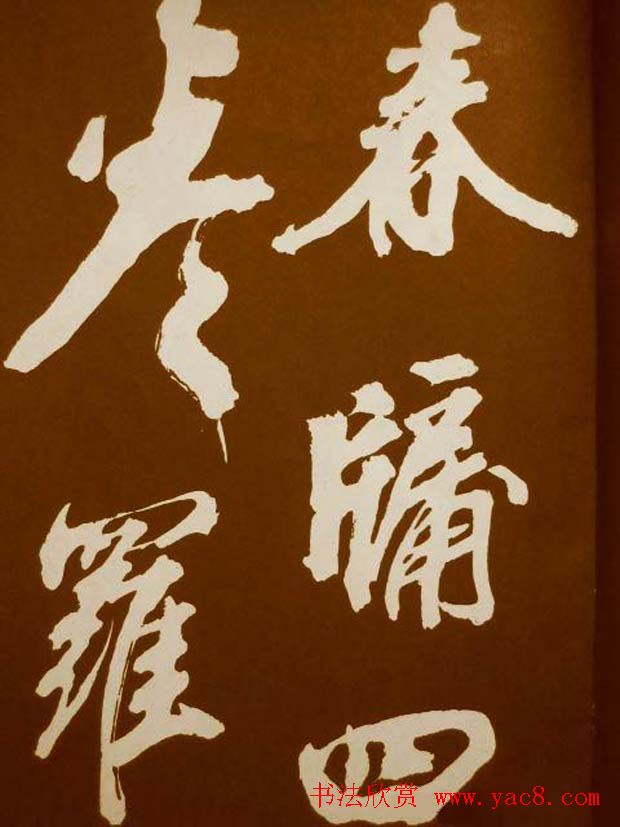 春牖四
羅
书法欣赏 www.yac8.com